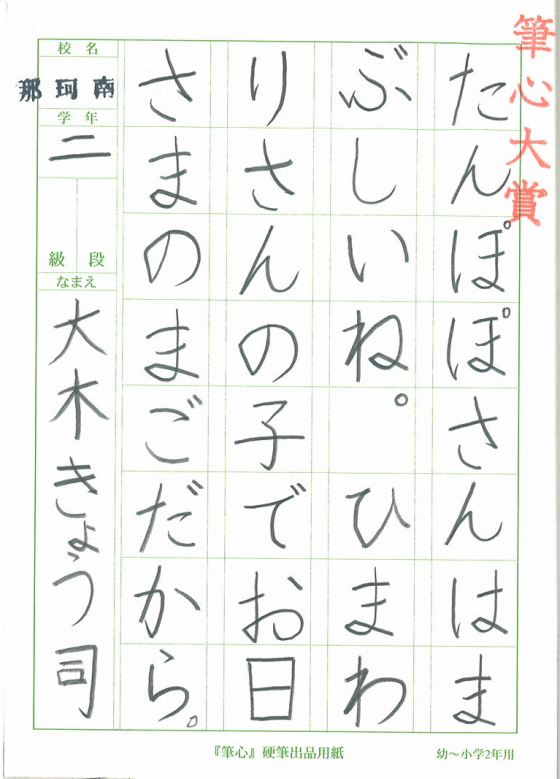 筆心大賞
たんぽぽさんはま
ぶしいね。ひまわ
りさんの子でお日
さまのまごだから。
校名
南珂那
学年
二
段級
なまえ
大木きょう司
『筆心』硬筆出品用紙
幼～小学2年用